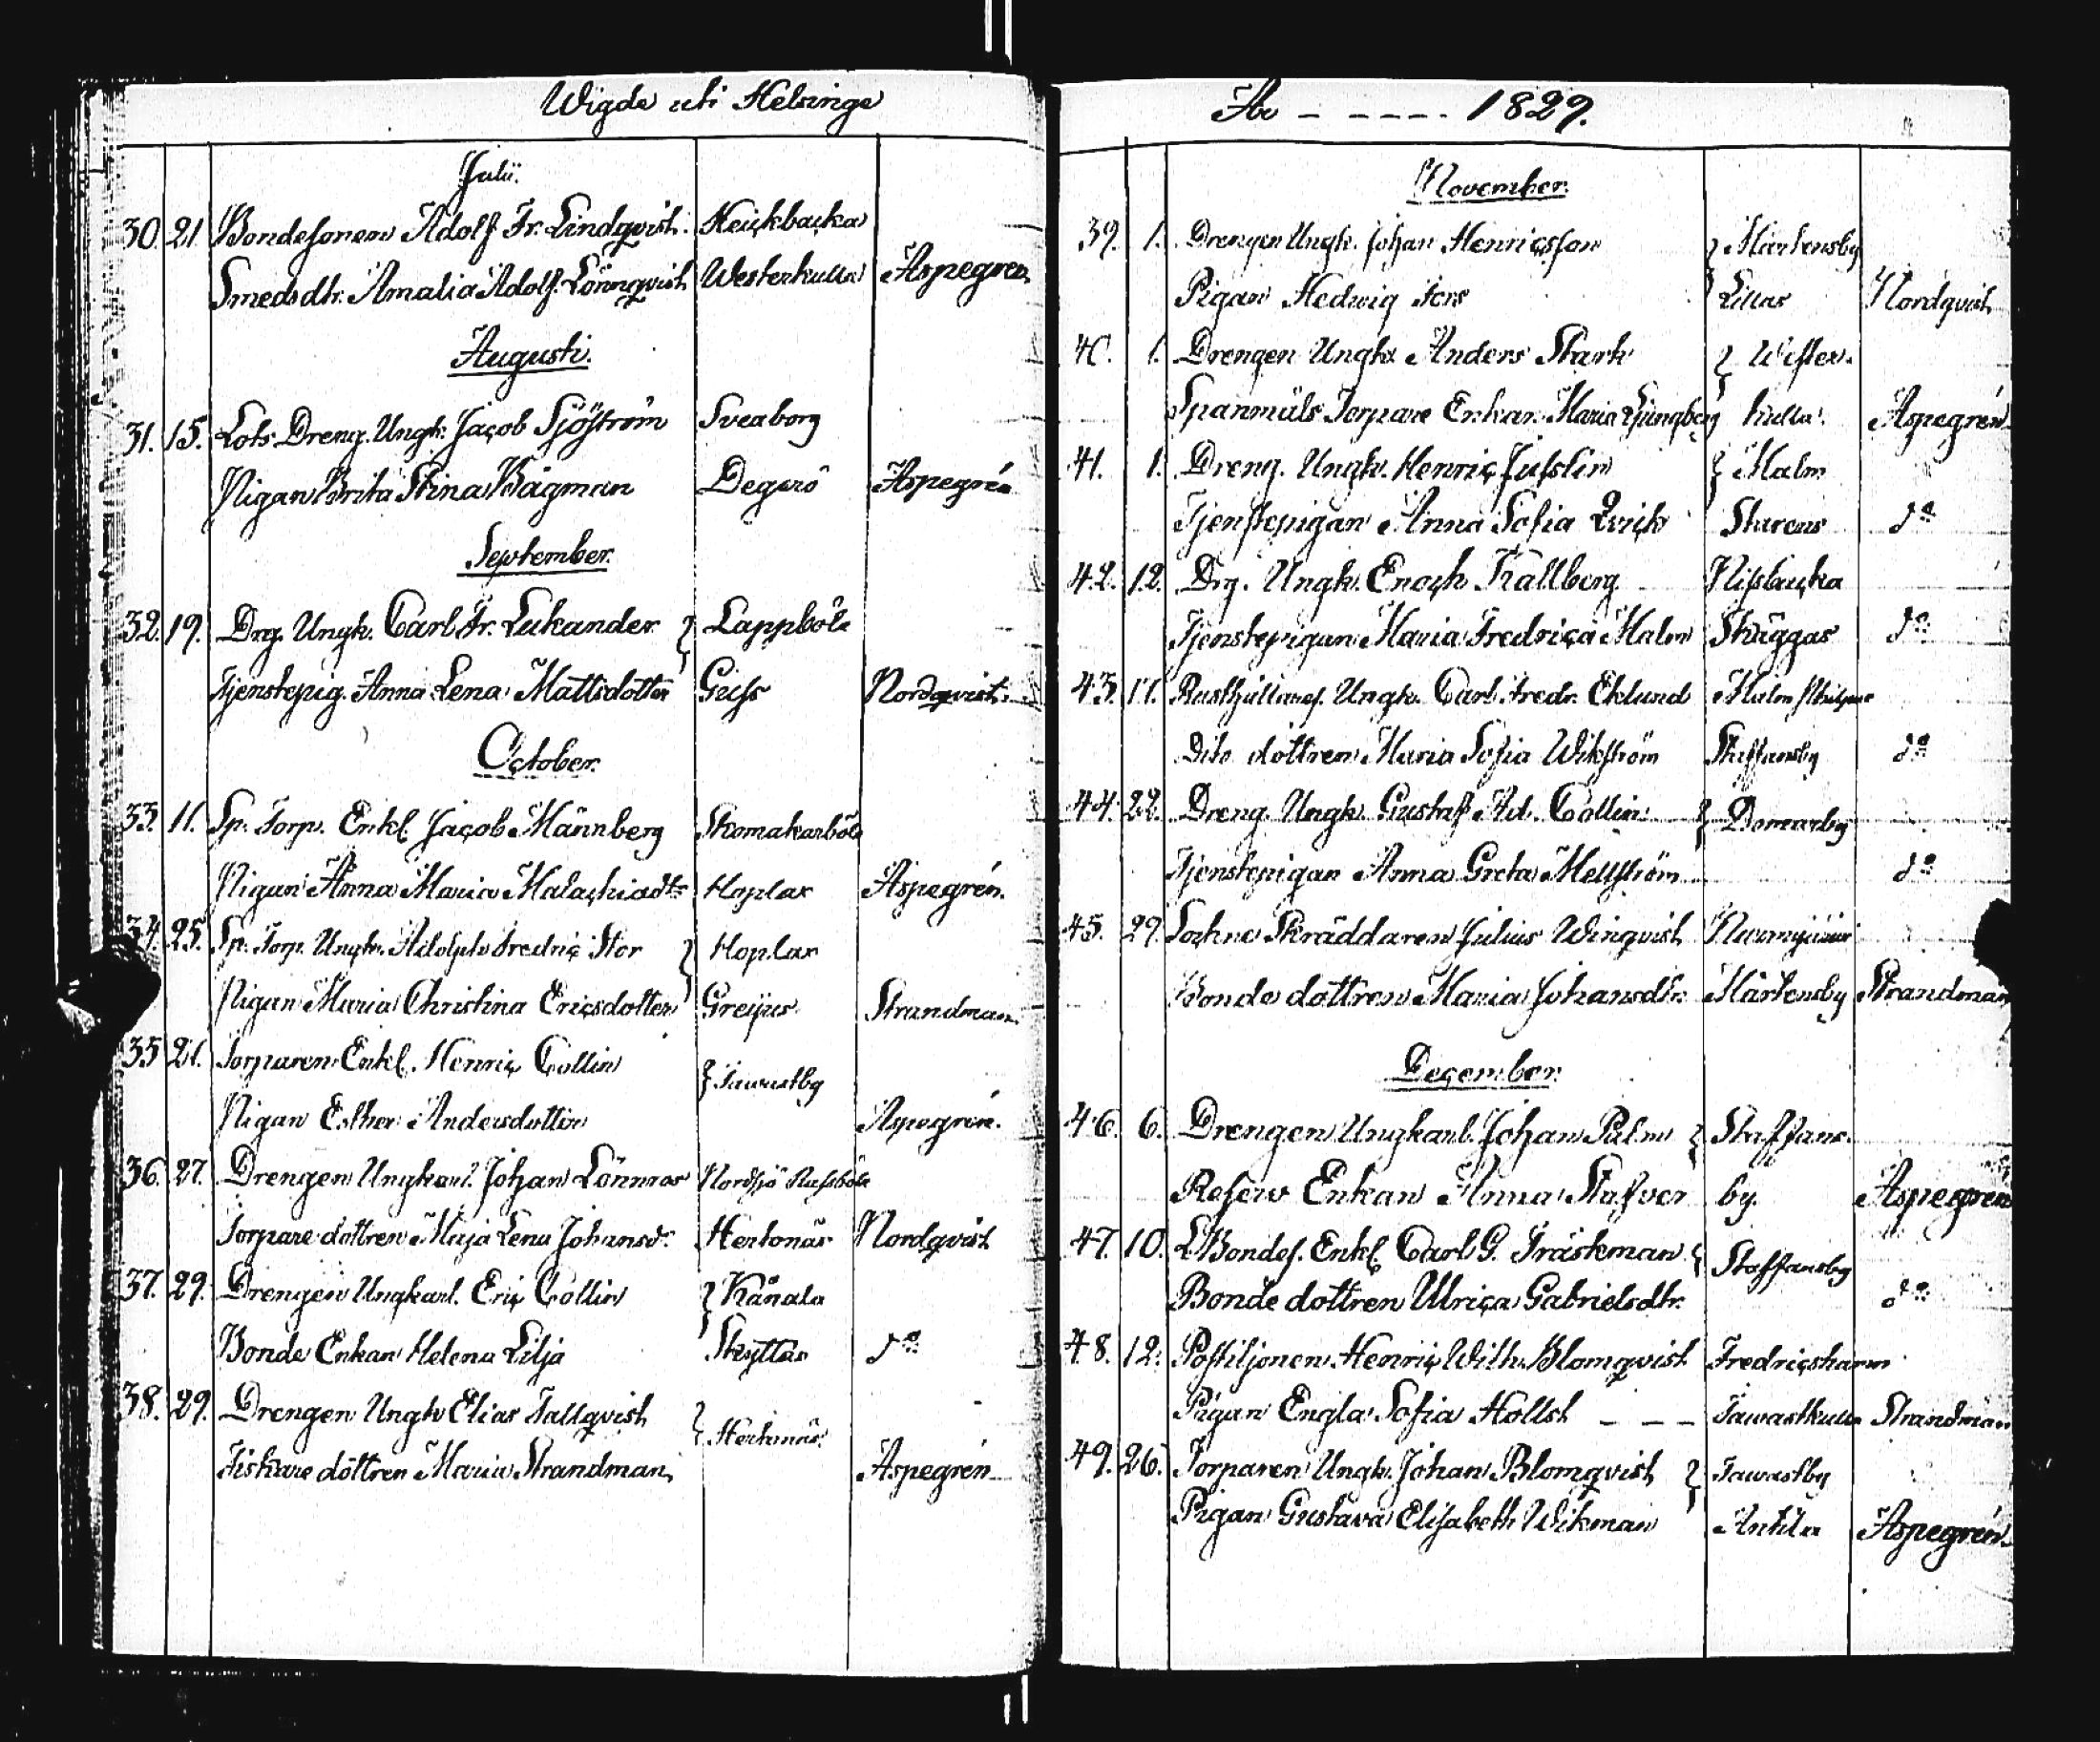 Wigde uti Helsinge
Julii.
30. 21. Bondesonen Adolf Fr. Lindqvist. Heickbacka
Smedsdtr. Amalia Adolf. Lönnqvist Westerkulla Aspegren
Augusti.
31. 15. Lots Dreng. Ungk. Jacob Sjöström Sveaborg
Pigan Brita Stina Bågman Degerö Aspegrén
September.
32. 19. Drg. Ungk. Carl Fr. Lukander Lappböle
Tjenstepig. Anna Lena Mattsdotter Nordqvist.
October.
33. 11. Sp. Torp. Enkl. Jacob Männberg Skomakarböle
Pigan Anna Maria Malachiadtr Hoplax Aspegrén.
34. 25. Sp. Torp. Ungk. Adolph Fredric Stor Hoplax
Pigan Maria Christina Ericsdotter Greijus Strandman.
35 Torparen Enkl. Henric Collin Tawastby
Pigan Esther Andersdotter Aspegrén.
36. 27. Drengen Ungkarl. Johan Lönnros Nordsjö Rastböle
Torpare dottren Maja Lena Johansd. Hertonäs Nordqvist
37. 29. Drengen Ungkarl. Eric Collin Kånala
Bonde Enkan Helena Lilja Skyttas do
38. 29. Drengen Ungk Elias Tallqvist Hertonäs.
Fiskare dottren Maria Strandman, Aspegrén
År - - - - - 1829.
November.
39. 1. Drengen Ungk. Johan Henricsson Mårtensby
Pigan Hedwig Fors Lillas Nordqvist
40. 1. Drengen Ungk. Anders Stark Wester-
Spanmåls Torpare Enkan Maria Ljungberg kulla. Aspegrén
41. 1. Dreng. Ungk. Henric Juslin Malm
Tjenstepigan Anna Sofia Qvick Starens do
42. 12. Drg. Ungk. Enoch Kallberg Nissbacka
Tjenstepigan Maria Fredrica Malm Skäggas do
43. Rusthållares. Ungk. Carl Fredr. Eklund Malm
Dito dottren Maria Sofia Wikström Staffansby do
44. 22. Dreng. Ungk Gustaf Ad. Collin Domarby
Tjenstepigan Anna Greta Mellström do
45. 29. Sockne Skräddaren Julius Winqvist Nurmijärvi
Bonde dottren Maria Johansdtr. Mårtensby Strandman
December.
46. 6. Drengen Ungkarl. Johan Palm Staffans-
Reserv Enkan Anna Stafver by. Aspegrén
47. 10. L. Bondes. Enkl. Carl G. Träskman Staffansby
Bonde dottren Ulrica Gabrielsdtr. do
48. 12. Postiljonen Henric Wilh. Blomqvist Fredricshamn
Pigan Engla Sofia Hollst - - - Tawastkulla Strandman
49. 26. Torparen Ungk. Johan Blomqvist Tawastby
Pigan Gustava Elisabeth Wikman Anttila Aspegrén.